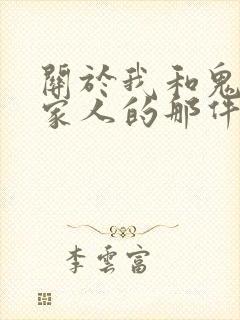 關於我和鬼
家人的那件
李雲富